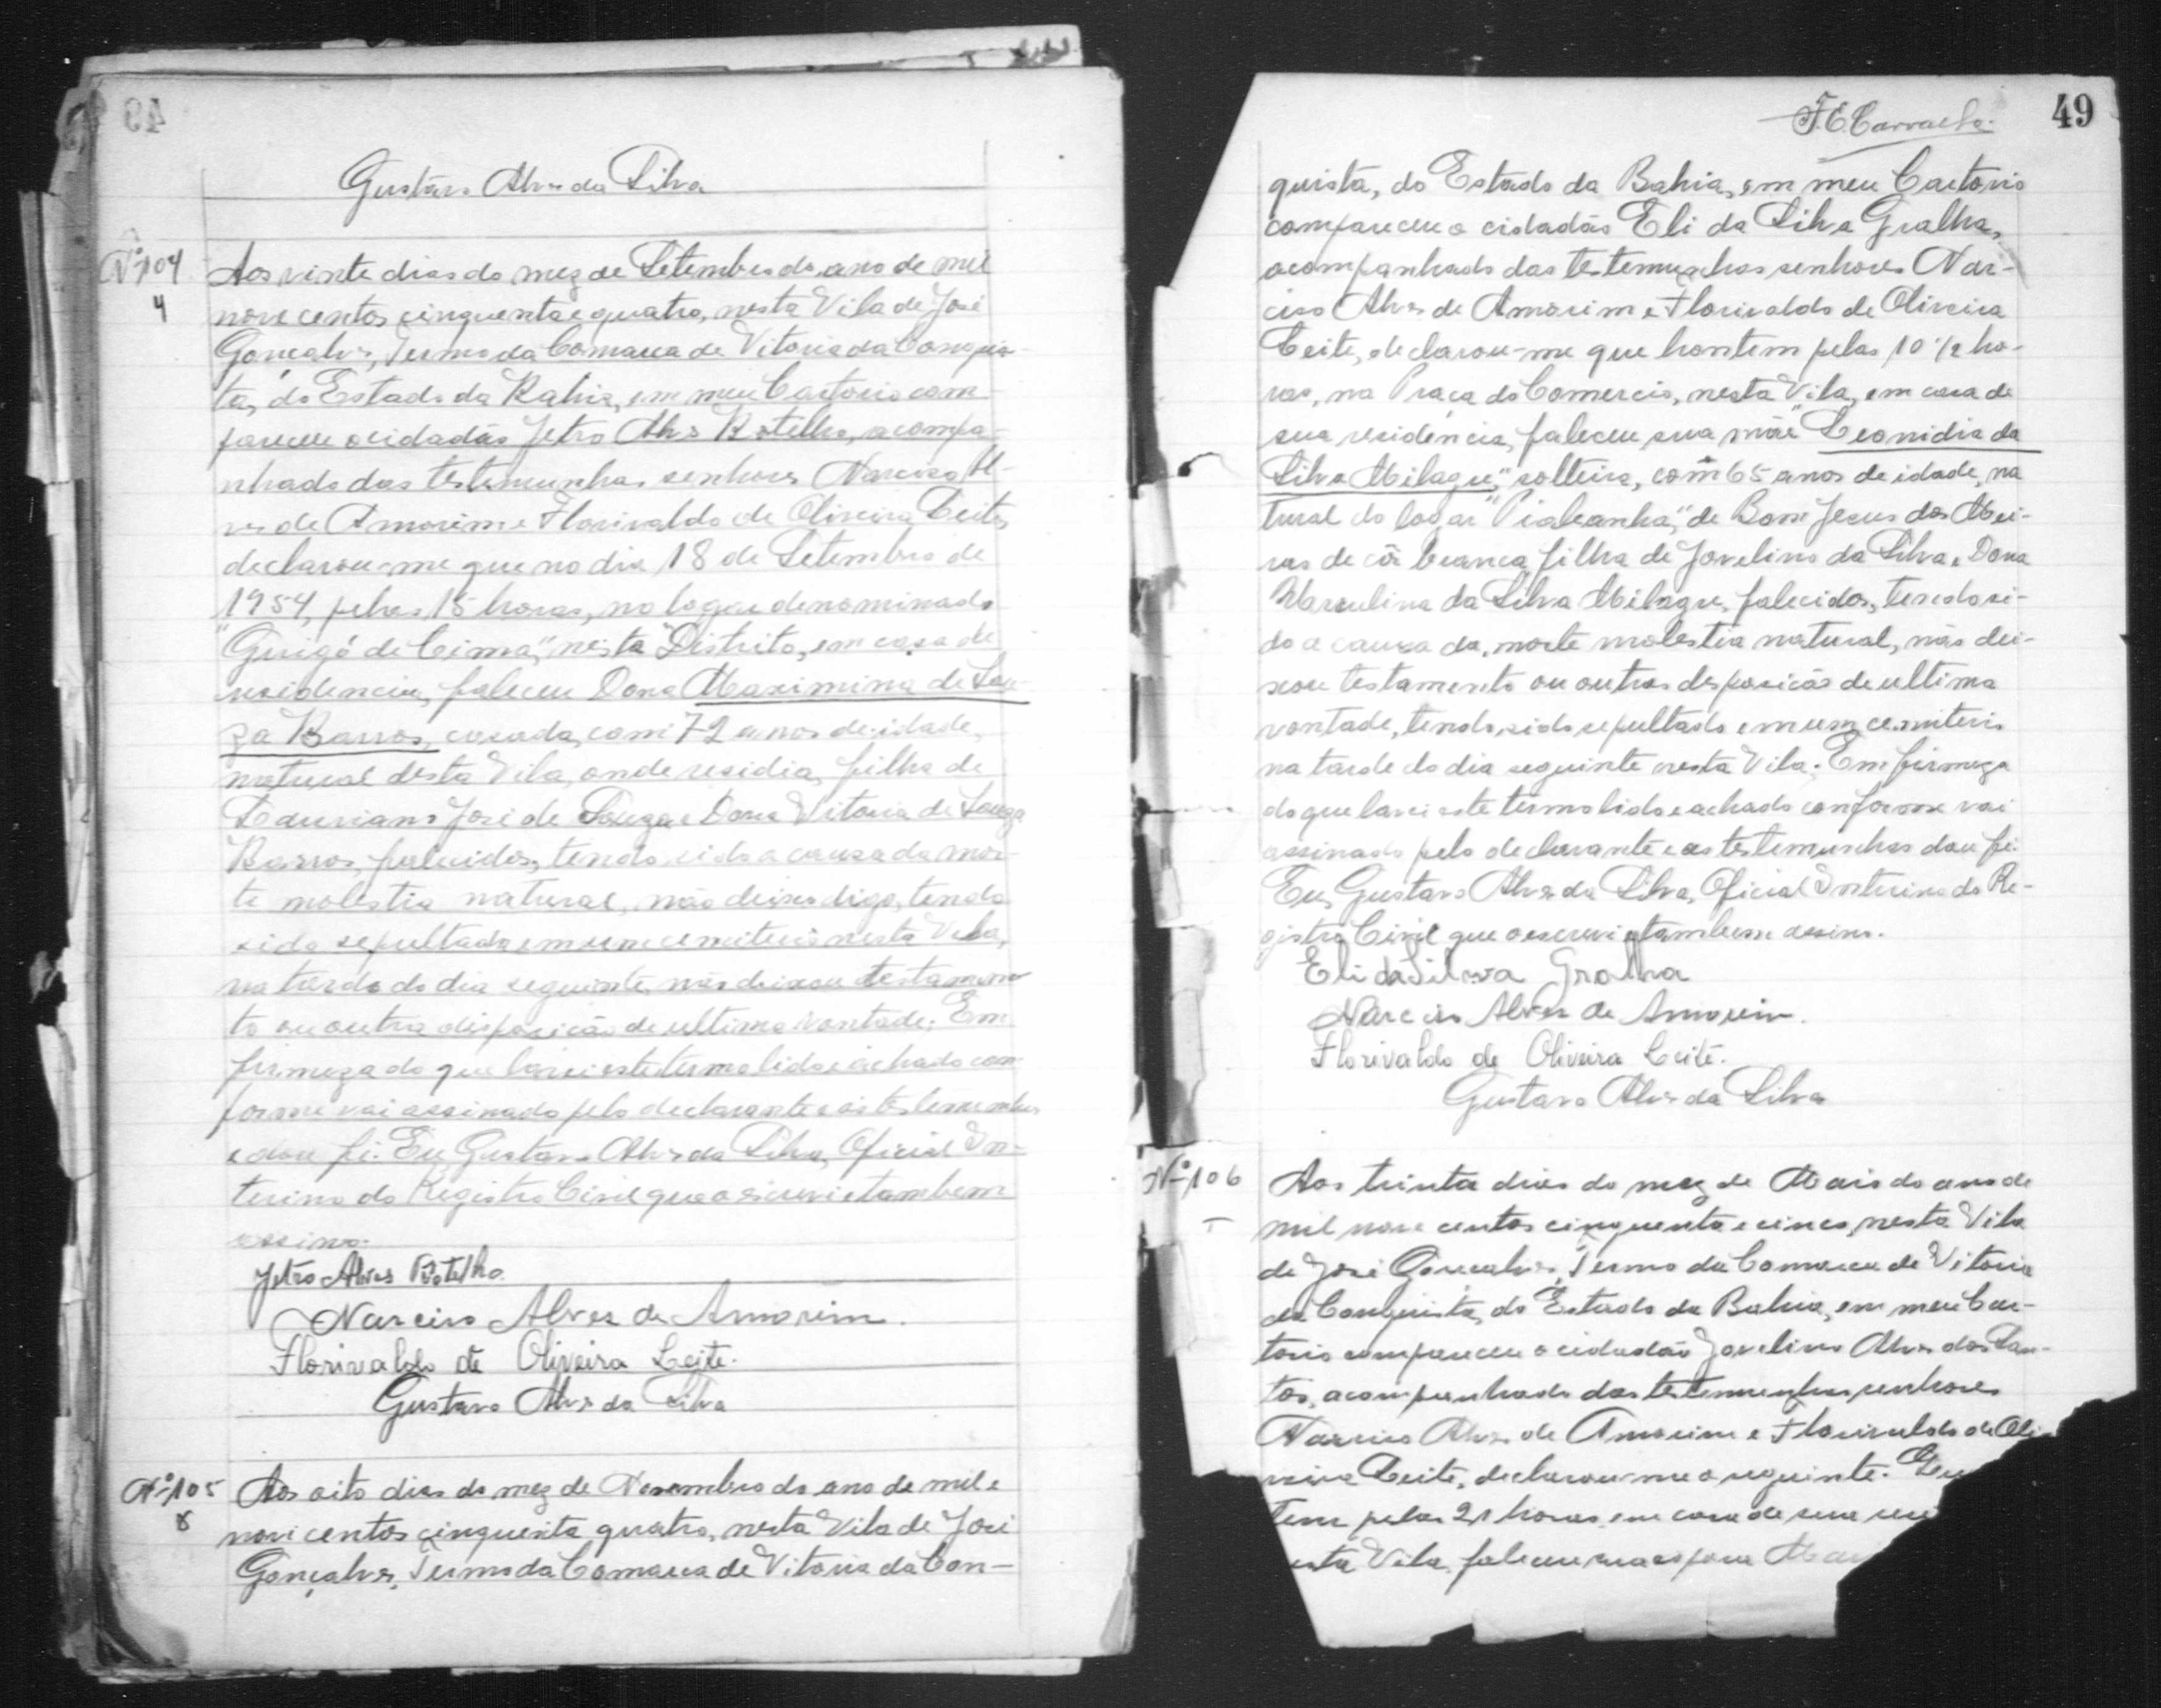 Gustavo Alves da Silva
Nº 104
4
Aos vinte dias do mez de Setembro do ano de mil
nove centos cinquenta e quatro, nesta Vila de José
Gonçalves, Termo da Comarca de Vitoria da Conquis-
ta, do Estado da Bahia, em meu Cartorio com-
pareceu o cidadão Jetro Alves Botelho, acompa-
nhado das testemunhas senhores Narciso Al-
ves de Amorim e Florivaldo de Oliveira Leite,
declarou-me que no dia 18 de Setembro de
1954, pelas 15 horas, no logar denominado
"Guigó de Cima," nesta Distrito, em casa de
residencia, faleceu Dona Maximina de Sou-
za Barros, casada, com 72 anos de idade,
natural desta Vila, onde residia, filha de
Lauriano José de Souza e Dona Vitoria de Souza
Barros, falecidos, tendo sido a causa da mor-
te molestia natural, não deixo digo, tendo
sido sepultada em um cemiterio nesta Vila,
na tarde do dia seguinte, não deixou testamen
to ou outra disposição de ultima vontade. Em
firmeza do que lavrei este termo lido e achado con-
forme vai assinado pelo declarante e as testemunhas
e dou fé. Eu Gustavo Alves da Silva, Oficial In-
terino do Registro Civil que o escrevi e tambem
assino.
Jetro Alves Botelho.
Narciso Alves de Amorim.
Florivaldo de Oliveira Leite.
Gustavo Alves da Silva
Nº 105
8
Aos oito dias do mez de Novembro do ano de mil e
novi centos cinquenta quatro, nesta Vila de José
Gonçalves, Termo da Comarca de Vitoria da Con-
F. E. Carvalho.
49
quista, do Estado da Bahia, em meu Cartorio
compareceu o cidadão Eli da Silva Gralha,
acompanhado das testemunhas senhores Nar-
ciso Alves de Amorim e Florivaldo de Oliveira
Leite, declarou-me que hontem pelas 10 1/2 ho-
ras, na Praça do Comercio, nesta Vila, em casa de
sua residência, faleceu sua mãe "Leonidia da
Silva Milagre," solteira, com 65 anos de idade, na
tural do logar de Bom Jesus dos Mei-
ras de côr branca, filha de Jovelino da Silva e Dona
Marculina da Silva Milagre, falecidos, tendo si-
do a causa da morte molestia natural, não dei-
xou testamento ou outras desposição de ultima
vontade, tendo sido sepultado em um cemiterio
na tarde do dia seguinte nesta Vila. Em firmeza
do que lavrei este termo lido e achado conforme vai
assinado pelo declarante e as testemunhas dou fé.
Eu, Gustavo Alves da Silva, Oficial Interino do Re-
gistro Civil que o escrevi e tambem assino.
Eli da Silva Gralha
Narciso Alves de Amorim.
Florivaldo de Oliveira Leite.
Gustavo Alves da Silva
Nº 106
Aos trinta dias do mez de Maio do ano de
mil nove centos cinquenta e cinco, nesta Vila
de José Gonçalves, Termo da Comarca de Vitoria
da Conquista, do Estado da Bahia, em meu Car-
torio compareceu o cidadão Jovelino Alves dos San-
tos, acompanhado das testemunhas senhores
Narciso Alves de Amorim e Florivaldo de Oli-
veira Leite, declarou-me o seguinte.
tem pelas 21 horas, em casa de sua resi
esta Vila, faleceu sua esposa Mar